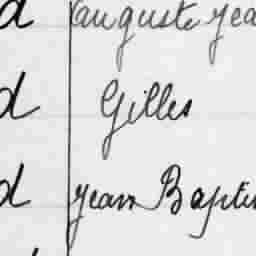 d auguste jea
d Gilles
d jean Baptis